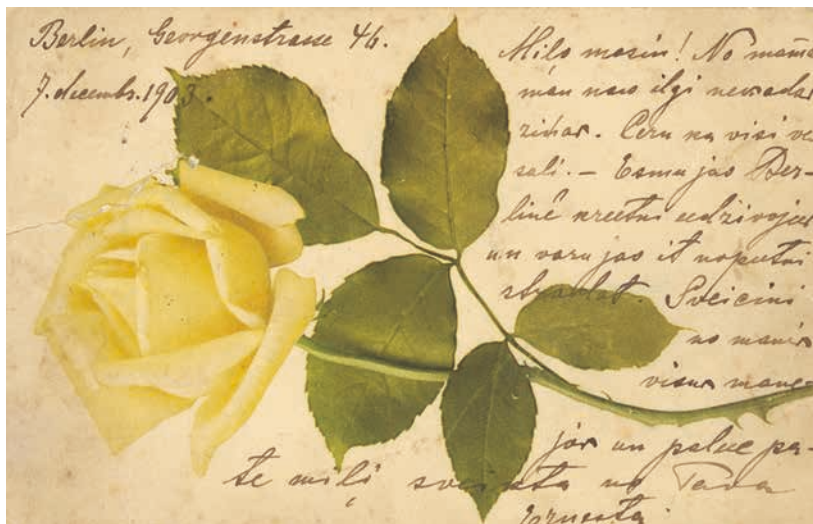 Berlin, Georgenstrasse 46.
7. decembr. 1903.
Milo masin! No mama
man naw ilgi nekadas
zinas. Ceru ka visi ve
seli. – Esmu jao Ber-
linê kreetni eedzivojies
un varu jao it nopeetni
strādat. Sveicini
no manis
visus mane-
jos un paleec pa-
te miļi sveikta no Tava
Ernesta.